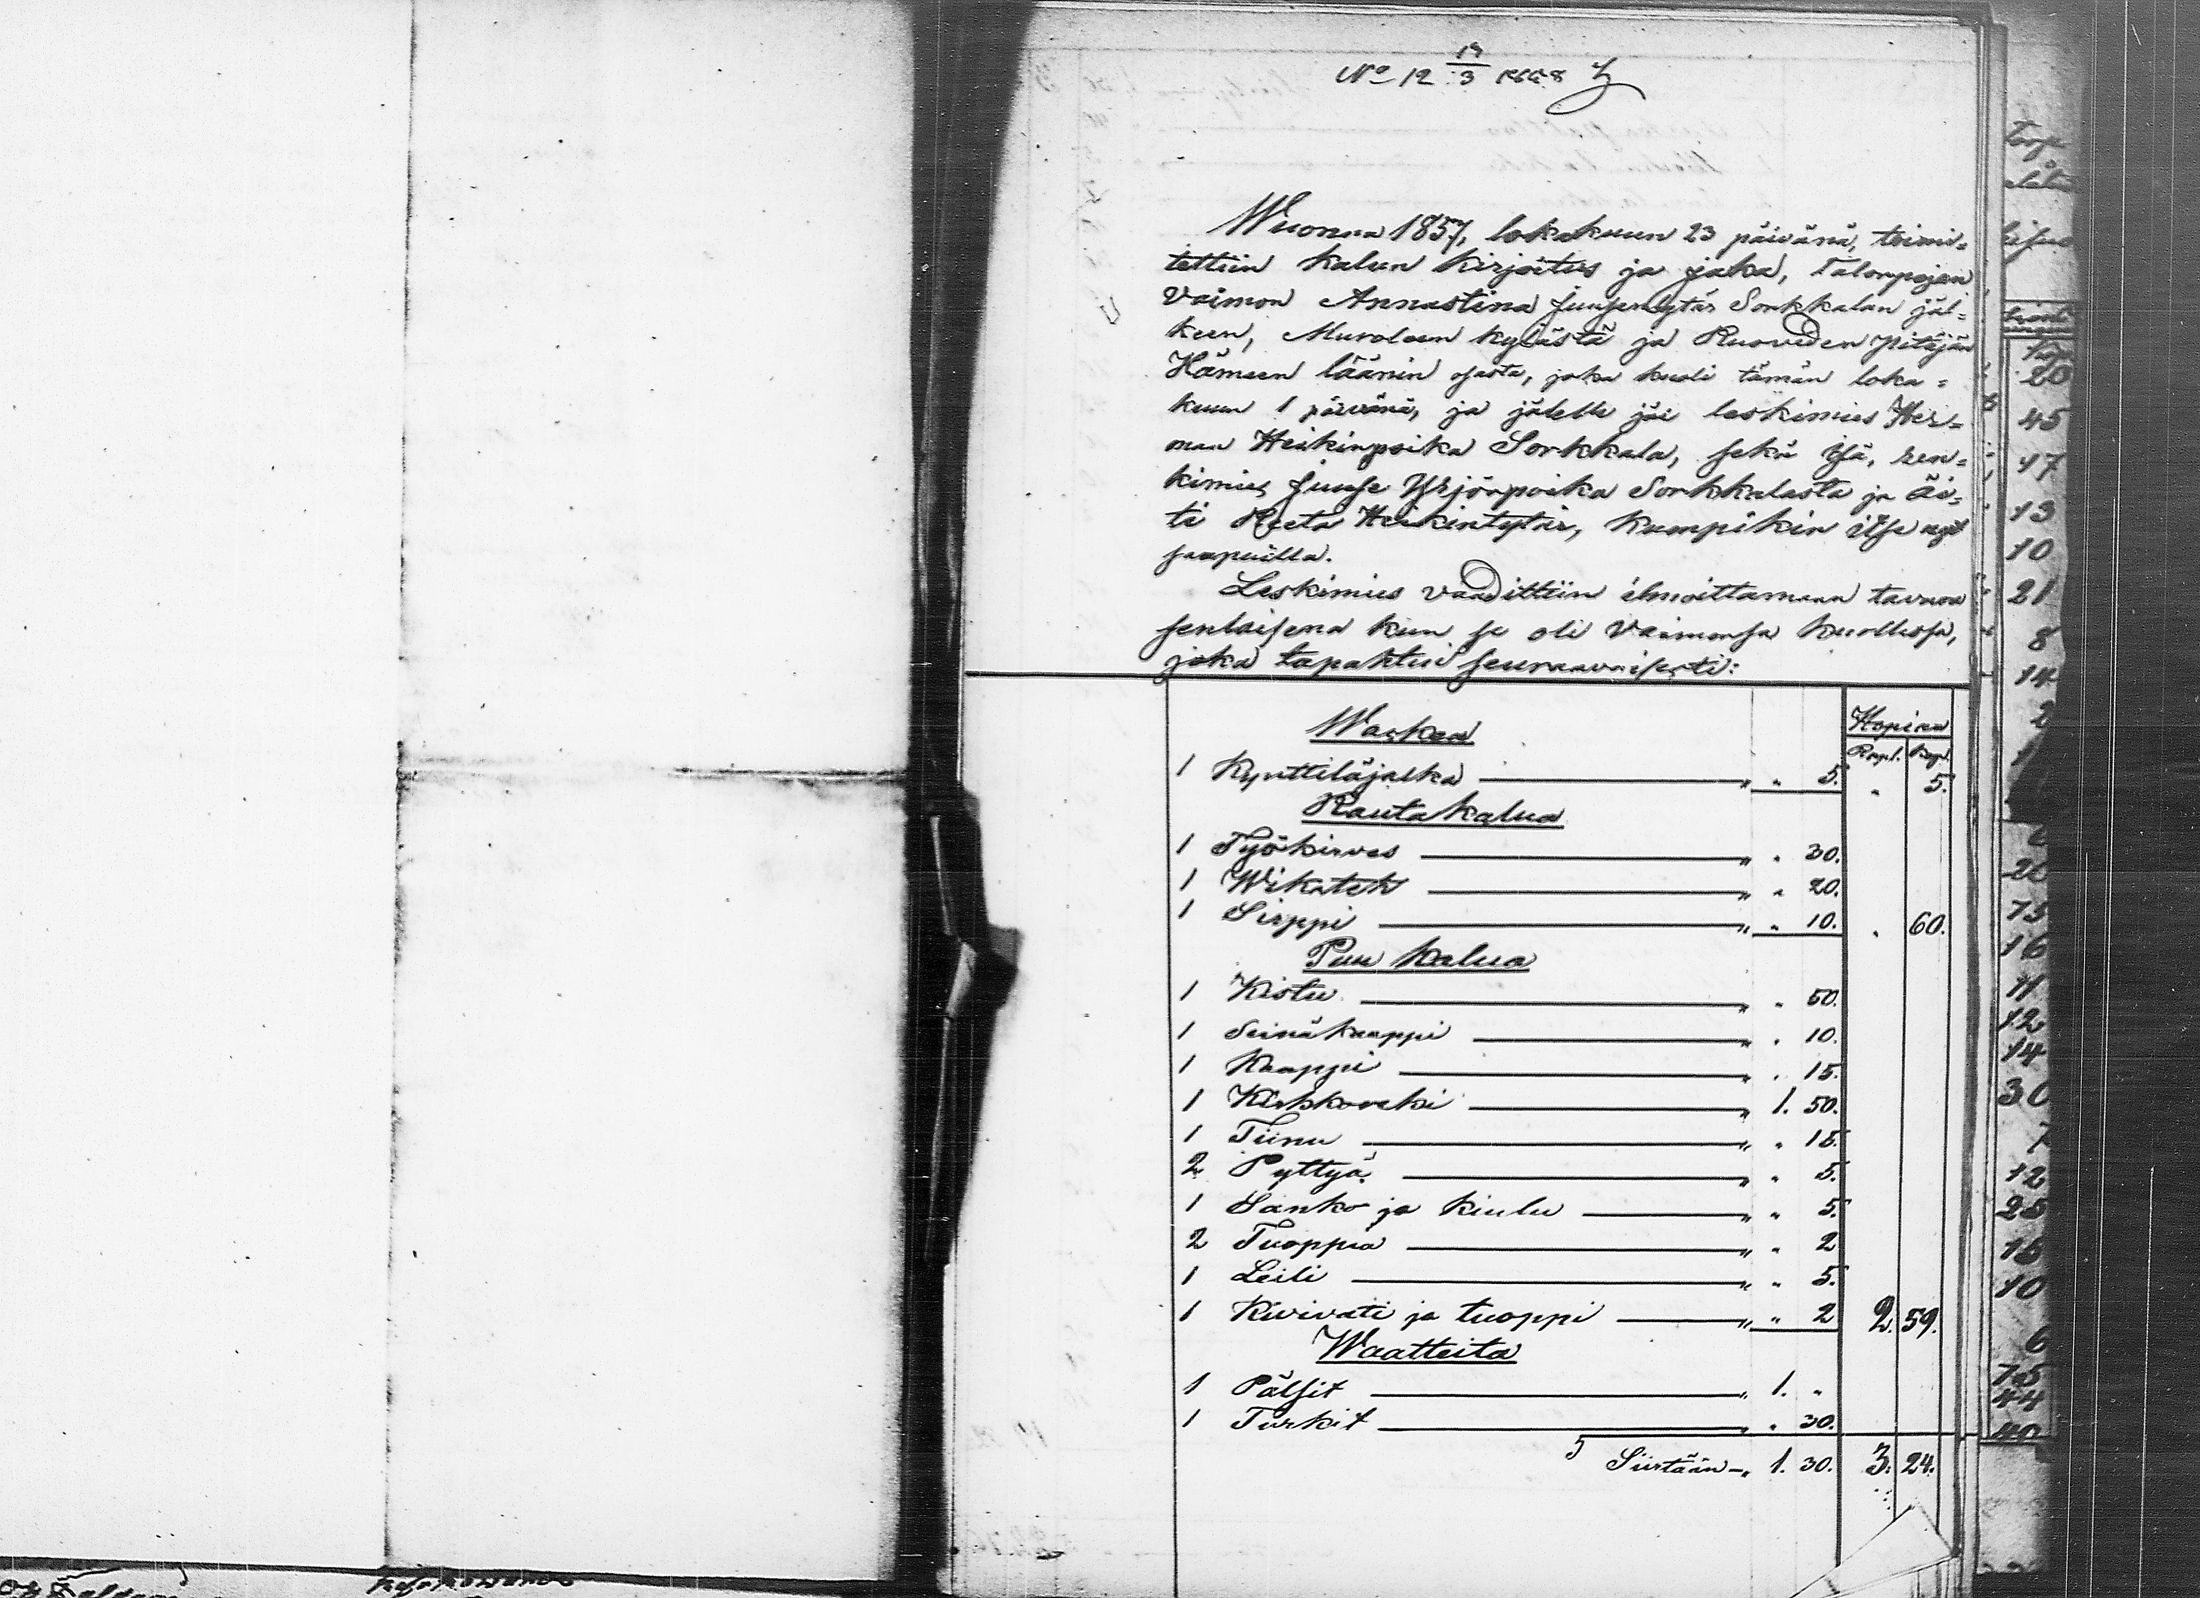 No 12 17/3 1858
Wuonna 1857, lokakuun 23 päivänä, toimi=
tettiin Kalun Kirjoitus ja jako, Talonpojan
Vaimon Annastina Juusentytär Sorkkalan jäl=
keen, Muroleen kylästä ja Ruoveden pitäjän
Hämeen läänin osasta, joka kuoli tämän loka=
kuun 1 päivänä, ja jälelle jäi leskimies Her=
man Heikinpoika Sorkkala, sekä Isä, ren=
kimies Juuse Yrjönpoika Sorkkalasta ja Äi=
ti Reeta Heikintytär, kumpikin itse nyt
saapuilla.
Leskimies vaadittiin ilmoittamaan tavaran
senlaisena kun se oli Vaimonsa kuollessa,
joka tapahtui seuraavaisesti:
Hopiaa
Waskea
Rupl. Kop.
1 Kynttiläjalka " " 5. " 5.
Rautakalua
1 Työkirves " " 30.
1 Wikateh " " 20.
1 Sirppi " " 10. " 60.
Puu kalua
1 Kistu " " 50.
1 Seinäkaappi " " 10.
1 Kaappi " " 15.
1 Kirkkoreki " 1. 50.
1 Tiinu " " 15.
2 Pyttyä " " 5.
1 Sanko ja kiulu " " 5.
2 Tuoppia " " 2
1 Leili " " 5.
1 Kivivati ja tuoppi " " 2 2. 59.
Waatteita
1 Pälsit " 1. "
1 Turkit " " 30.
Siirtään " 1. 30. 3. 24.
20
45
17
13
10
21
8
14
2
20
75
16
11
12
14
30
7
12
25
15
10
6
75
44
40